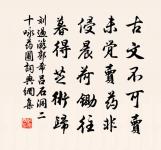 古文不可賣
未覺賣藥非
侵晨荷鋤往
暮得芝術歸
劉過游郭希呂石洞二
十詠藥圃詞典網集